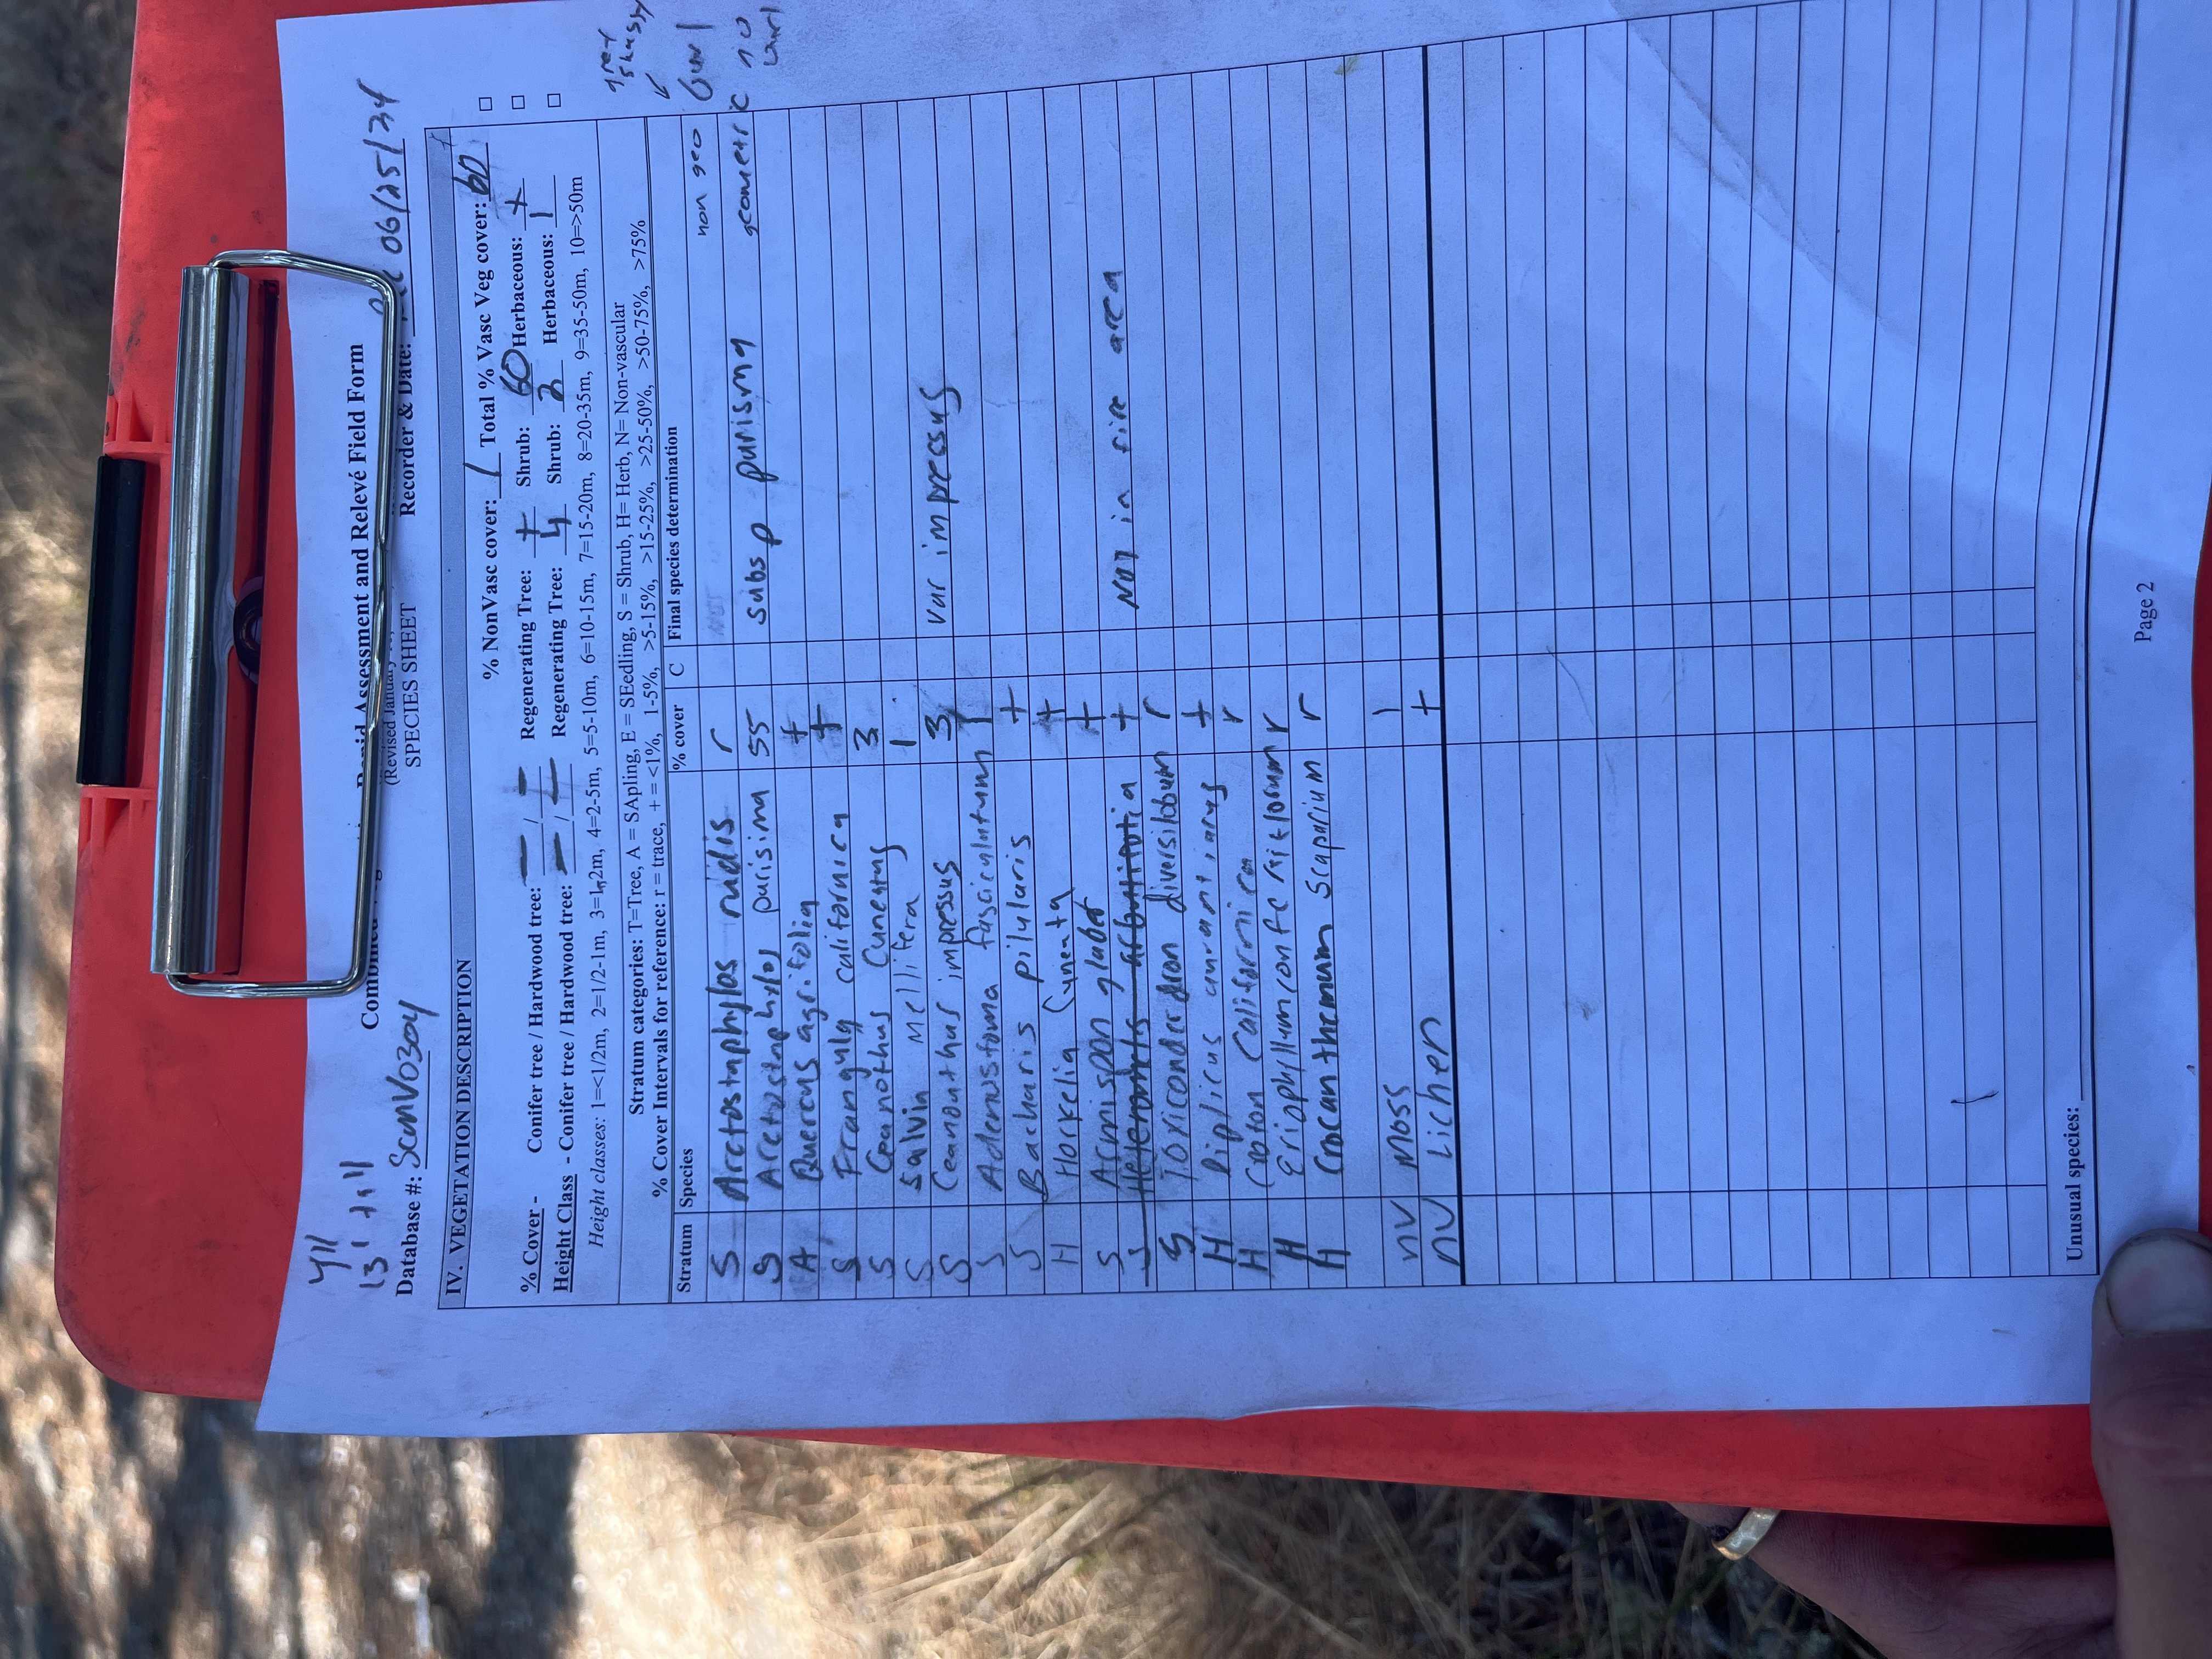 y11
13' tall
Combined Rapid Assessment and Relevé Field Form
(Revised
SPECIES SHEET
Database #: ScanV0304 Recorder & Date: 06/25/24
IV. VEGETATION DESCRIPTION
% NonVasc cover: 1 Total % Vasc Veg cover: 60 □
% Cover - Conifer tree / Hardwood tree: — / — Regenerating Tree: + Shrub: 60 Herbaceous: + □
Height Class - Conifer tree / Hardwood tree: — / — Regenerating Tree: 4 Shrub: 3 Herbaceous: 1 □
Height classes: 1=<1/2m, 2=1/2-1m, 3=1-2m, 4=2-5m, 5=5-10m, 6=10-15m, 7=15-20m, 8=20-35m, 9=35-50m, 10=>50m
Stratum categories: T=Tree, A = SApling, E = SEedling, S = Shrub, H= Herb, N= Non-vascular
% Cover Intervals for reference: r = trace, + = <1%, 1-5%, >5-15%, >15-25%, >25-50%, >50-75%, >75%
grey
shussy
Stratum Species % cover C Final species determination
S Arctostaphylos rudis r non geo burl
S Arctostaphylos purisima 55 subsp purisima geometric no burl
A Quercus agrifolia +
S Frangula californica +
S Ceanothus Cuneatus 3
S Salvia mellifera 1
S Ceanothus impressus 3 var impressus
S Adenostoma fasciculatum 1
S Baccharis pilularis +
H Horkelia Cuneata +
S Acmispon glaber +
S +  Not in fire area
S Toxicondedron diversilobum r
H Diplicus aurantiacus +
H Croton Californica r
H Eriophyllum confertiflorum r
H Crocanthemum Scoparium r
NV Moss 1
NV Lichen +
Unusual species:
Page 2